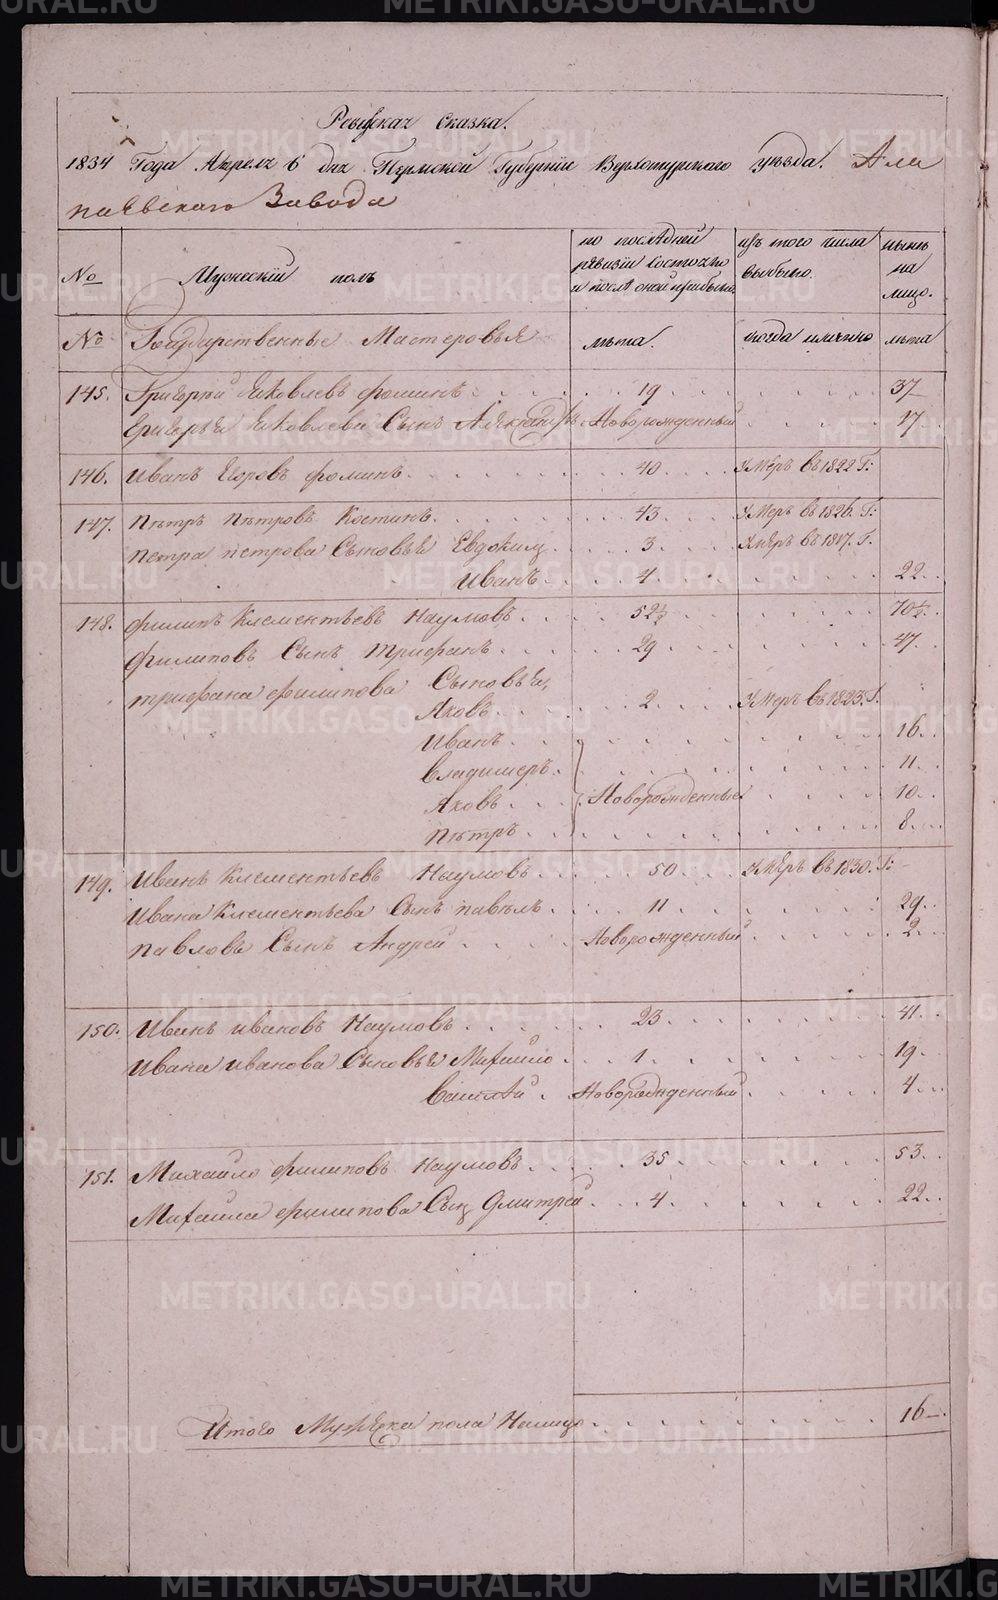 Ревижская Сказка.
1834 Года Апреля 6 дня Пермской Губернии Верхотурского уезда. Ала
паевского Завода
№ Мужеский полъ по последней ревизии состояло и после оной прибыло. изъ того числа выбыло. нынѣ на лицо.
№ Государственные Мастеровыя лѣта. когда имянно лѣта
145. Григорий Яковлевъ Фоминъ 19 37
Григорья Яковлева Сынъ Новорожденный 17
146. Иванъ Егоровъ Фоминъ 40 Умеръ въ 1822 Г:
147. Петръ Петровъ Костинъ 43 Умеръ въ 1826. Г:
Петра петрова Сыновья Евдоким 3 Умеръ въ 1817. Г.
Иванъ 4 22
148. Филипъ Клементьевъ Наумовъ 52½ 70½
Филиповъ Сынъ Трифанъ 29 47
Трифана Филипова Сыновья,
Яковъ 2 Умеръ въ 1823. Г.
Иванъ 16
Владимеръ 11
Яковъ Новорожденные 10
Петръ 8
149. Иванъ Клементьевъ Наумовъ 50 Умеръ въ 1830. Г:
Ивана Клементьева Сынъ Павелъ 11 29
Павловъ Сынъ Андрей Новорожденный 2
150. Иванъ Ивановъ Наумовъ 23 41
Ивана Иванова Сыновья Михайло 1 19
Василий Новорожденный 4
151. Михайло Филиповъ Наумовъ 35 53
Михайла Филипова Сын Дмитрей 4 22
Итого Мужеска пола Налицо 16
METRIKI.GASO-URAL.RU